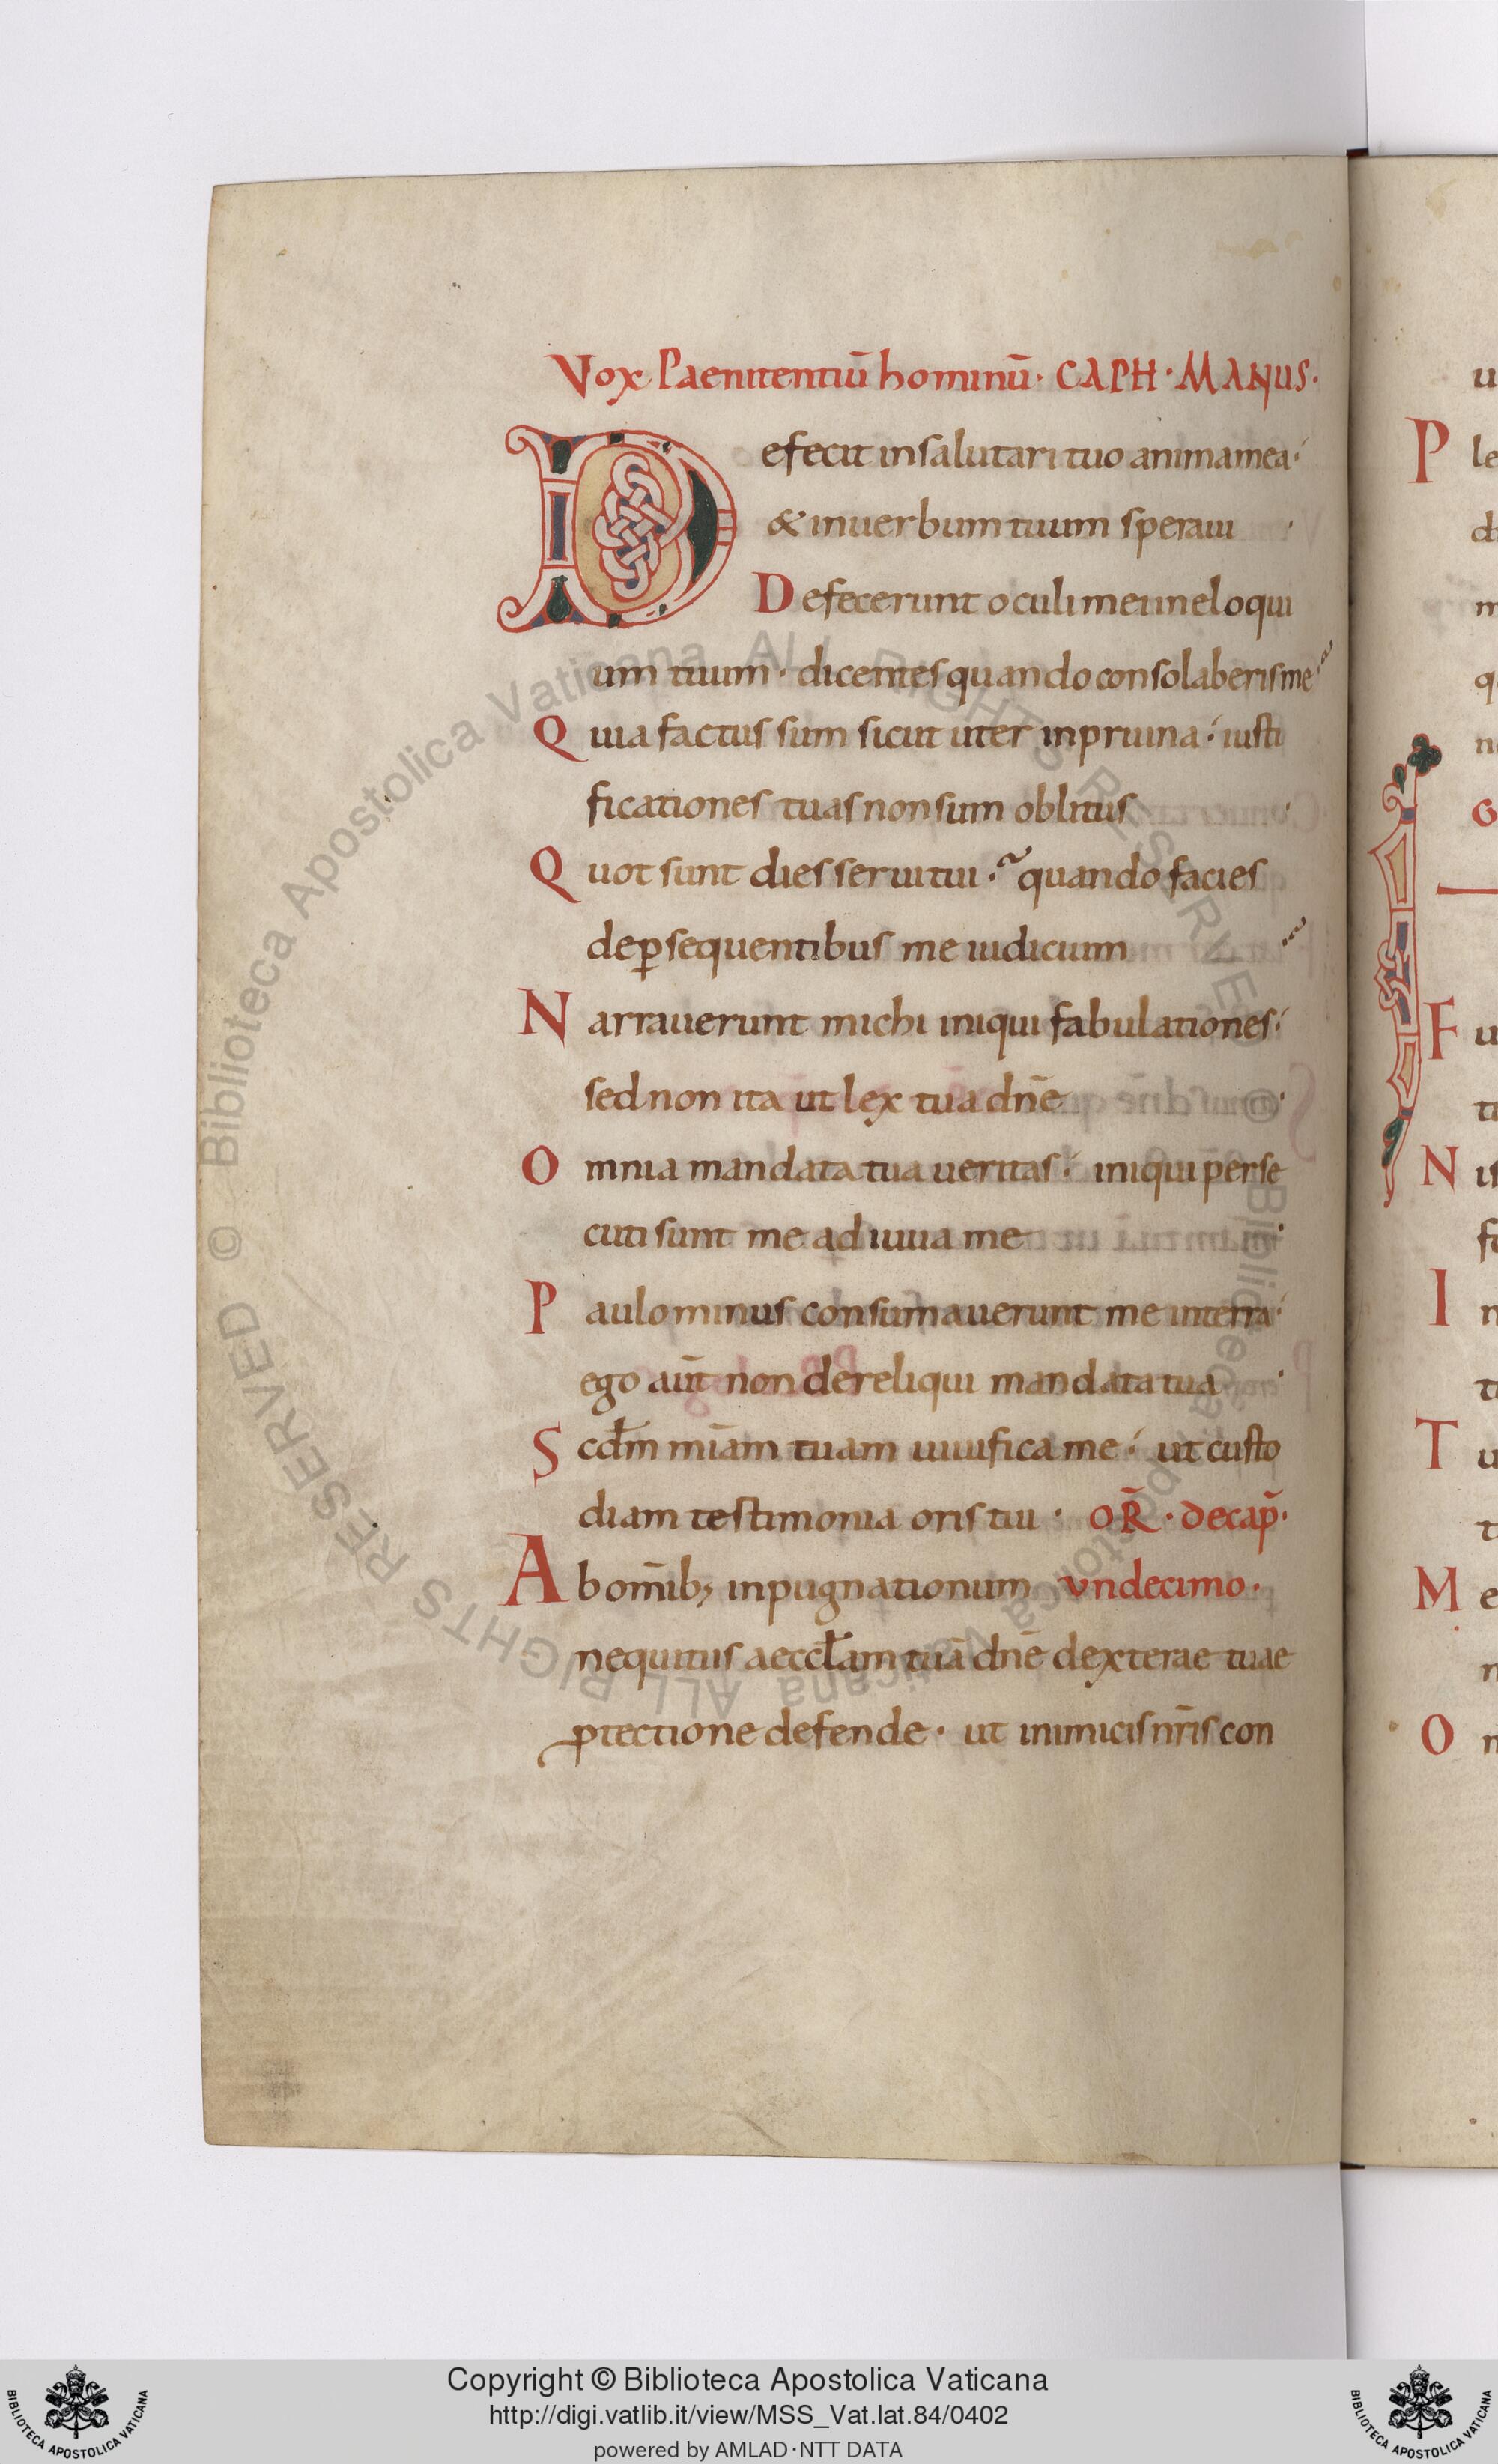 Vox Paenitentiū hominū · CAPH · MANUS ·
Defecit in salutari tuo anima mea ·
& in uerbum tuum speraui ·
Defecerunt oculi mei in eloqui
um tuum · dicentes quando consolaberis me
Quia factus sum sicut uter in pruina · iusti
ficationes tuas non sum oblitus ·
Quot sunt dies serui tui · quando facies
de ꝑsequentibus me iudicium
Narrauerunt michi iniqui fabulationes ·
sed non ita ut lex tua dn̄e ·
Omnia mandata tua ueritas · iniqui perse
cuti sunt me adiuua me ·
Paulo minus consumauerunt me in terra ·
ego aūt non dereliqui mandata tua ·
Scd̄m mīam tuam uiuifica me · ut custo
diam testimonia oris tui · OR̄ · de cap̄ ·
Ab om̄ib; inpugnationum vndecimo ·
nequitiis aeccl̄am tuā dn̄e dexterae tuae
ꝓtectione defende · ut inimicis nr̄is con
P
F
N
I
T
M
O
© Biblioteca Apostolica Vaticana ALL RIGHTS RESERVED
© Biblioteca Apostolica Vaticana ALL RIGHTS RESERVED
BIBLIOTECA APOSTOLICA VATICANA
Copyright © Biblioteca Apostolica Vaticana
http://digi.vatlib.it/view/MSS_Vat.lat.84/0402
powered by AMLAD·NTT DATA
BIBLIOTECA APOSTOLICA VATICANA